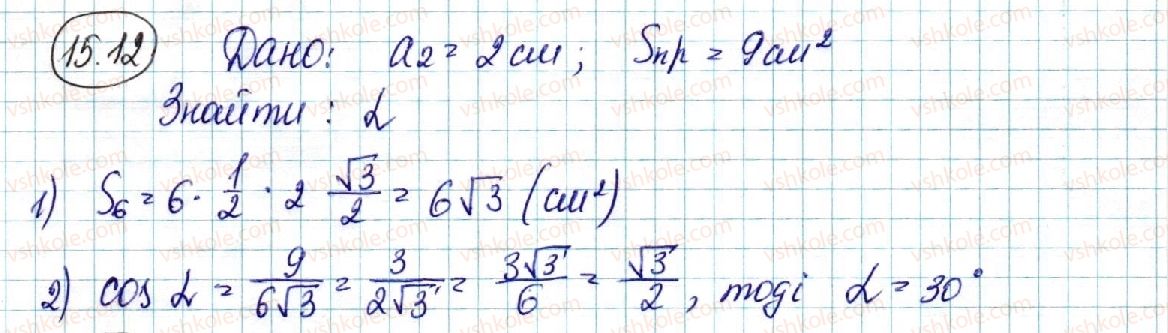 15.12 Дано: a2 = 2 см; Sпр = 9 см²
Знайти: α
1) S6 = 6 · 1/2 · 2 √3/2 = 6√3 (см²)
2) cos α = 9/(6√3) = 3/(2√3) = 3√3/6 = √3/2, тоді α = 30°
vshkole.com